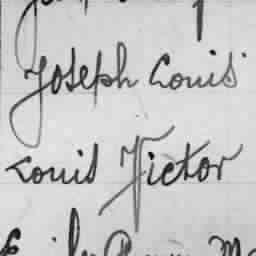 Joseph Louis
Louis Victor
Emily